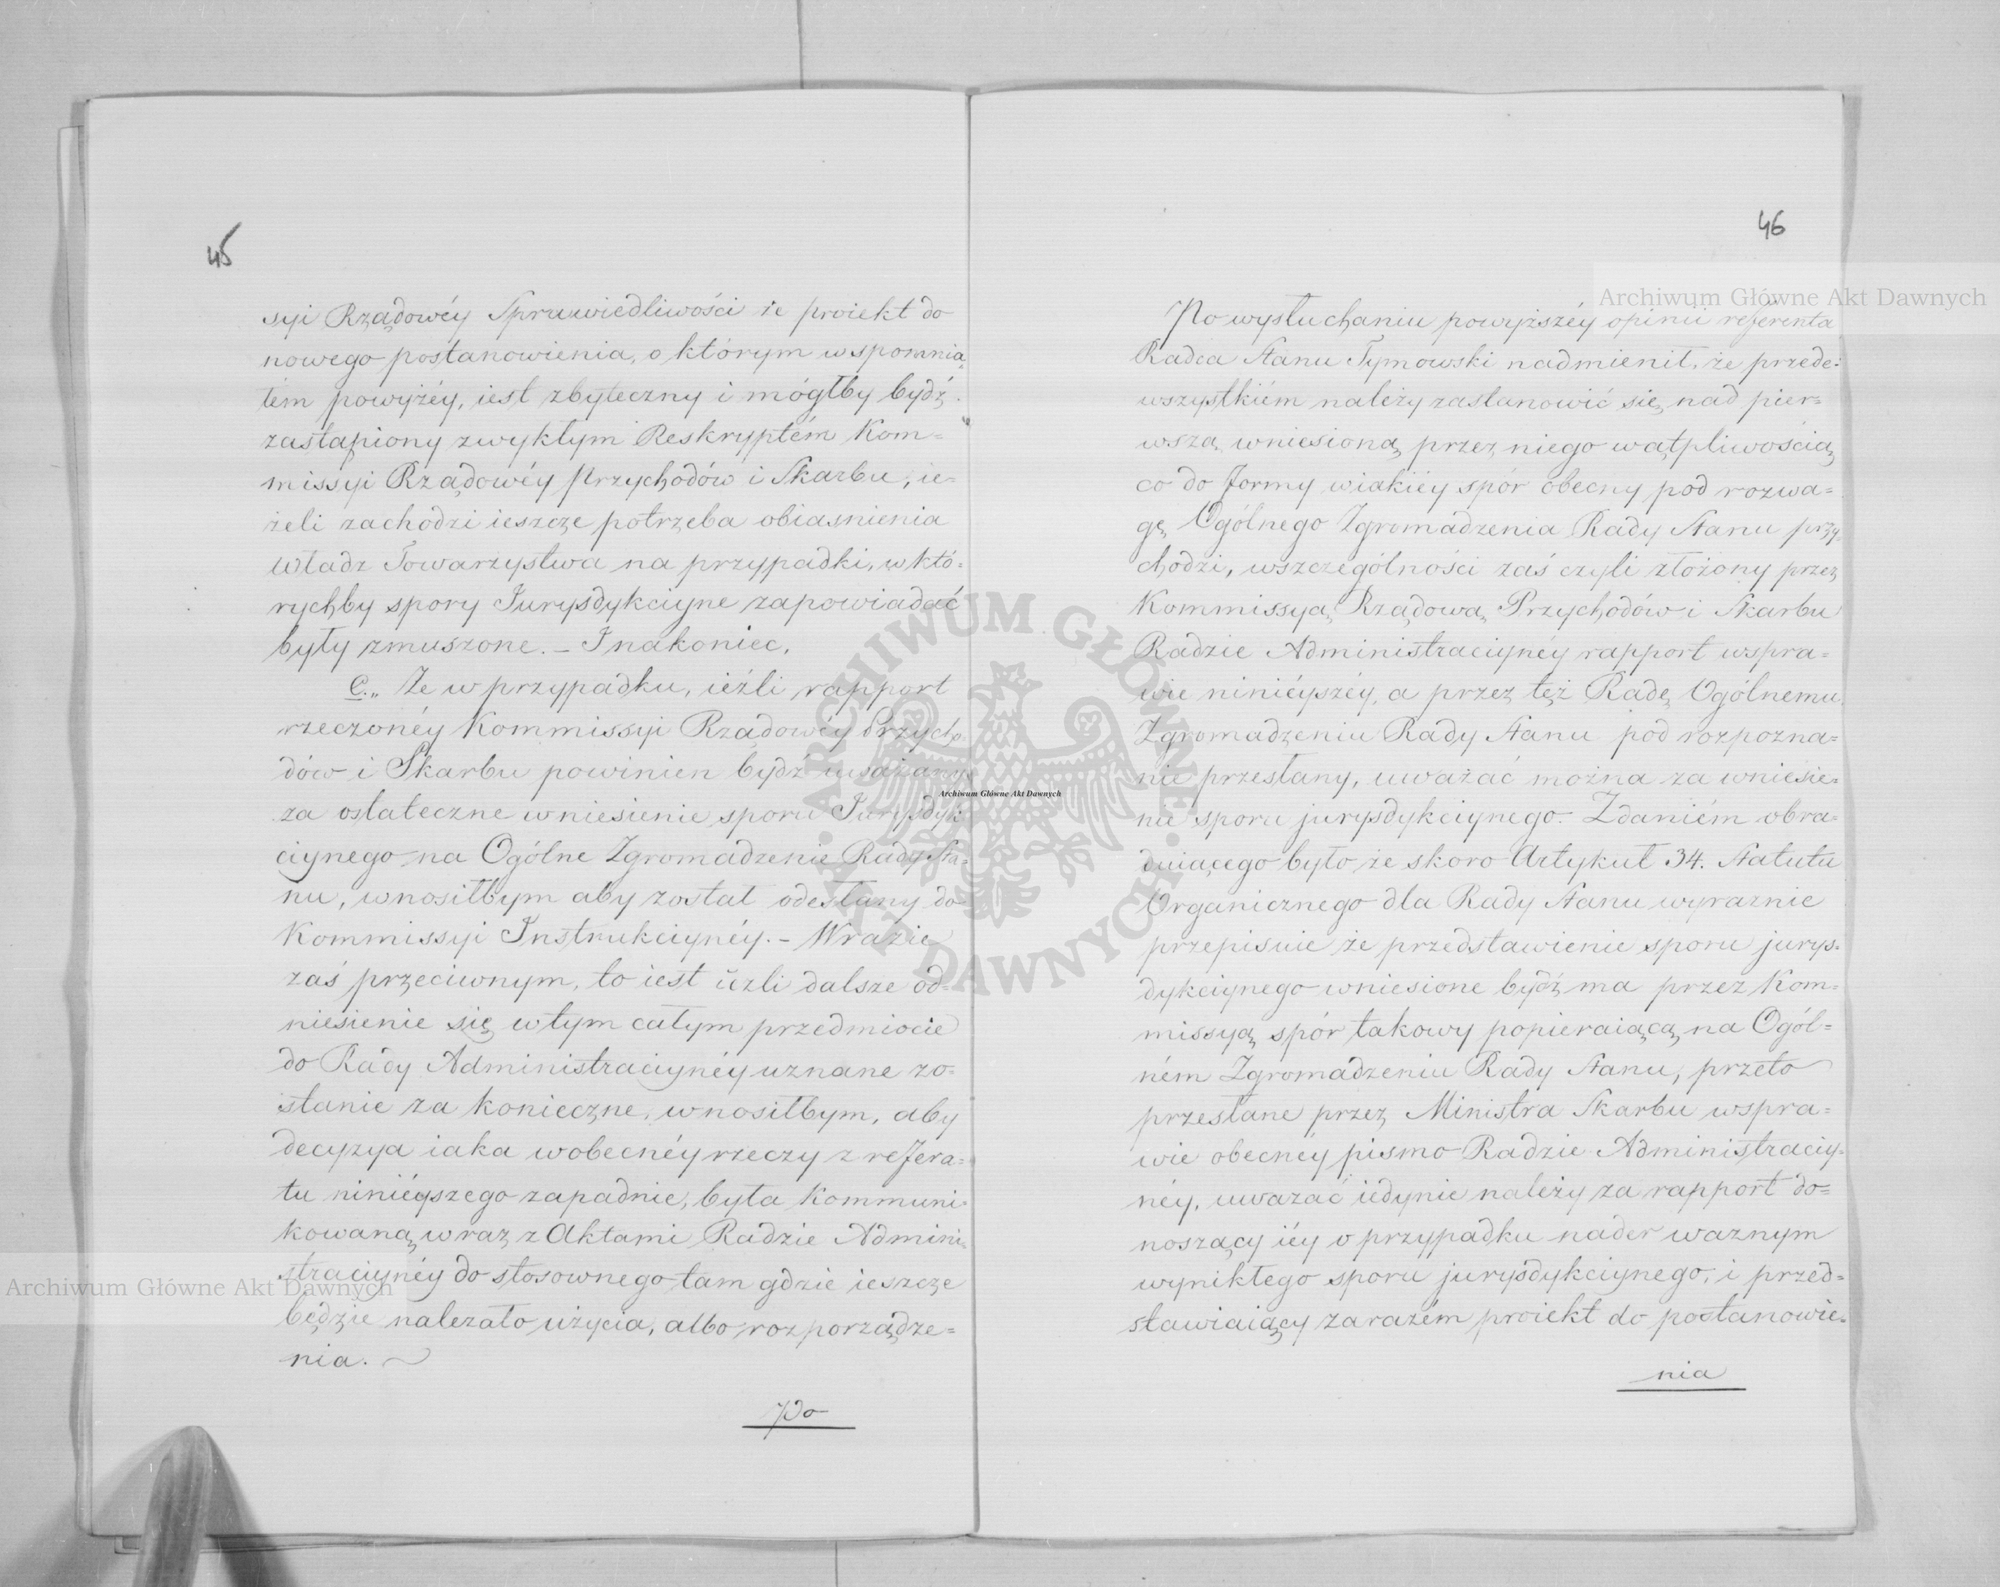 45
syi Rządowéy Sprawiedliwości że proiekt do
nowego postanowienia, o którym wspomnia-
łém powyżéy, iest zbyteczny i mógłby bydź
zastąpiony zwykłym Reskryptém Kom-
missyi Rządowéy Przychodów i Skarbu, ie-
żeli zachodzi ieszcze potrzeba obiasnienia
Władz Towarzystwa na przypadki, w któ-
rychby spory Jurysdykcyine zapowiadać
były zmuszone. – Inakoniec,
C., Że w przypadku, ieźli rapport
rzeczonéy Kommissyi Rządowéy Przycho
dów i Skarbu powinien bydź uważany
za ostateczne wniesienie sporu Jurysdyk
cyinego na Ogólne Zgromadzenie Rady Sta-
nu, wnosiłbym aby został odesłany do
Kommissyi Instrukcyinéy. – W razie
zaś przeciwnym, to iest ieżli dalsze od-
niesienie się w tym całym przedmiocie
do Rady Administracyinéy uznane zo-
stanie za konieczne, wnosiłbym, aby
decyzya iaka w obecnéy rzeczy z refera-
tu ninieyszego zapadnie, była kommuni-
kowaną wraz z Aktami Radzie Admini-
stracyinéy do stosownego tam gdzie ieszcze
będzie nalezało użycia, albo rozporządze-
nia.
Po
46
Po wysłuchaniu powyższéy opinii referenta
Radca Stanu Tymowski nadmienił, że przede-
wszystkiém należy zastanowić się nad pier-
wszą wniesioną przez niego wątpliwością
co do formy w iakiéy spór obecny pod rozwa-
gę Ogólnego Zgromadzenia Rady Stanu przy-
chodzi, w szczególności zaś czyli złożony przez
Kommissyą Rządową Przychodów i Skarbu
Radzie Administracyinéy rapport w spra-
wie niniéyszéy, a przez też Radę Ogólnemu
Zgromadzeniu Rady Stanu pod rozpozna-
nie przesłany, uważać można za wniesie-
nie sporu jurysdykcyinego. Zdaniém obra-
duiącego było że skoro Artykuł 34. Statutu
Organicznego dla Rady Stanu wyraznie
przepisuie że przedstawienie sporu jurys-
dykcyinego wniesione bydź ma przez Kom-
missyą spór takowy popieraiącą na Ogól-
ném Zgromadzeniu Rady Stanu, przeto
przesłane przez Ministra Skarbu w spra-
wie obecnéy pismo Radzie Administracyi-
néy, uważać iedynie należy za rapport do-
noszący iéy o przypadku nader waznym
wynikłego sporu jurysdykcyinego, i przed-
stawiaiący zarazém proiekt do postanowie-
nia
Archiwum Główne Akt Dawnych
Archiwum Główne Akt Dawnych
Archiwum Główne Akt Dawnych
ARCHIWUM GŁÓWNE AKT DAWNYCH